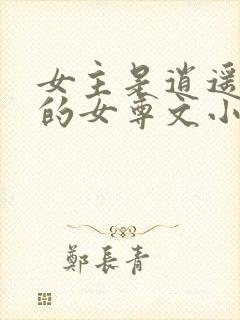 女主是逍遥
的女尊文小
鄭長青